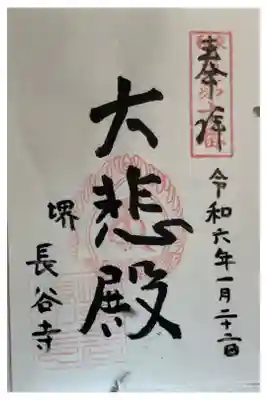 奉拝
令和六年一月二十二日
大悲殿
堺
長谷寺